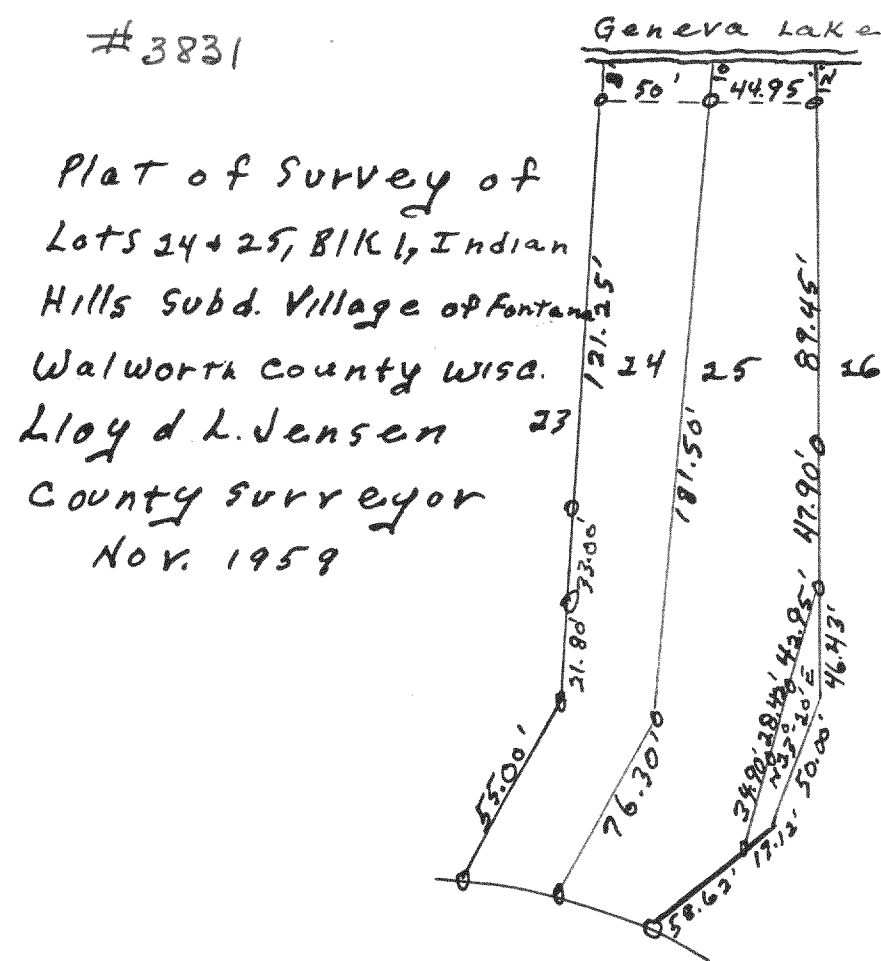 Geneva Lake
#3831
8'
50'
10'
44.95'
12'
Plat of Survey of
Lots 24 & 25, Blk 1, Indian
Hills Subd. Village of Fontana
Walworth County Wisc.
Lloyd L. Jensen
County Surveyor
Nov. 1959
121.25'
89.45'
23
24
25
26
181.50'
47.90'
33.00'
21.80'
42.95'
46.43'
28.42'
N23°-20'E
34.90'
50.00'
55.00'
76.30'
19.12'
58.62'